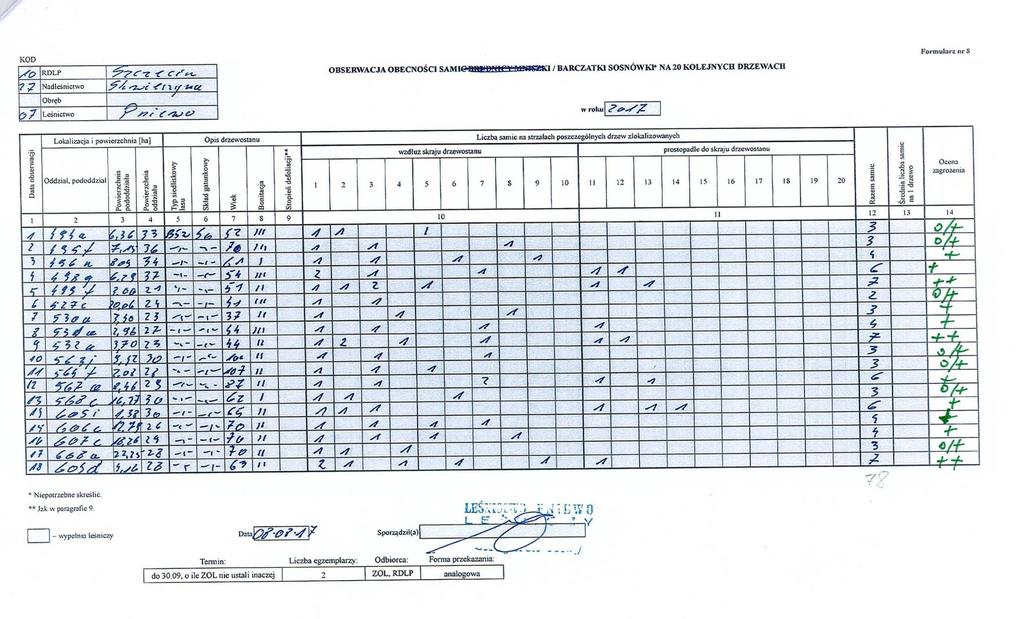 Formularz nr 8
KOD
10 RDLP Szczecin
27 Nadleśnictwo Skwierzyna
Obręb
07 Leśnictwo Pniewo
OBSERWACJA OBECNOŚCI SAMIC BRUDNICY MNISZKI / BARCZATKI SOSNÓWKI* NA 20 KOLEJNYCH DRZEWACH
w roku 2017
Data obserwacji
Lokalizacja i powierzchnia [ha]
Opis drzewostanu
Liczba samic na strzałach poszczególnych drzew zlokalizowanych
wzdłuż skraju drzewostanu
prostopadle do skraju drzewostanu
Oddział, pododdział
Powierzchnia pododdziału
Powierzchnia oddziału
Typ siedliskowy lasu
Skład gatunkowy
Wiek
Bonitacja
Stopień defoliacji**
1 2 3 4 5 6 7 8 9 10 11 12 13 14 15 16 17 18 19 20
Razem samic
Średnia liczba samic na 1 drzewo
Ocena zagrożenia
1 2 3 4 5 6 7 8 9 10 11 12 13 14
1 6,36 33 52 III 1 1 1 3 0/+
2 36 70 III 1 1 1 3 0/+
3 34 61 I 1 1 1 1 4 +
4 37 54 III 2 1 1 1 1 6 +
5 21 51 II 1 1 2 1 1 1 7 ++
6 527 c 20,06 24 III 1 1 2 0/+
7 530 a 23 37 II 1 1 1 3 +
8 2,96 27 44 III 1 1 1 1 4 +
9 532 a 3,70 23 44 II 1 2 1 1 1 1 7 ++
10 563 j 30 II 1 1 1 3 0/+
11 2,08 28 107 II 1 1 1 3 0/+
12 567 8,46 29 87 II 1 1 2 1 1 6 +
13 568 c 16,77 30 62 I 1 1 1 3 0/+
14 605 i 1,38 30 65 II 1 1 1 1 1 1 6 +
15 606 c 12,75 26 70 II 1 1 1 1 4 +
16 607 c 18,26 29 70 II 1 1 1 1 4 +
17 608 a 22,25 28 70 II 1 1 1 3 0/+
18 609 d 4,16 28 63 II 2 1 1 1 1 1 7 ++
78
* Niepotrzebne skreślić.
** Jak w paragrafie 9.
- wypełnia leśniczy
Data 08-08-17
Sporządził(a)
LEŚNICTWO PNIEWO
LEŚNICZY
Termin: Liczba egzemplarzy: Odbiorca: Forma przekazania:
do 30.09, o ile ZOL nie ustali inaczej 2 ZOL, RDLP analogowa